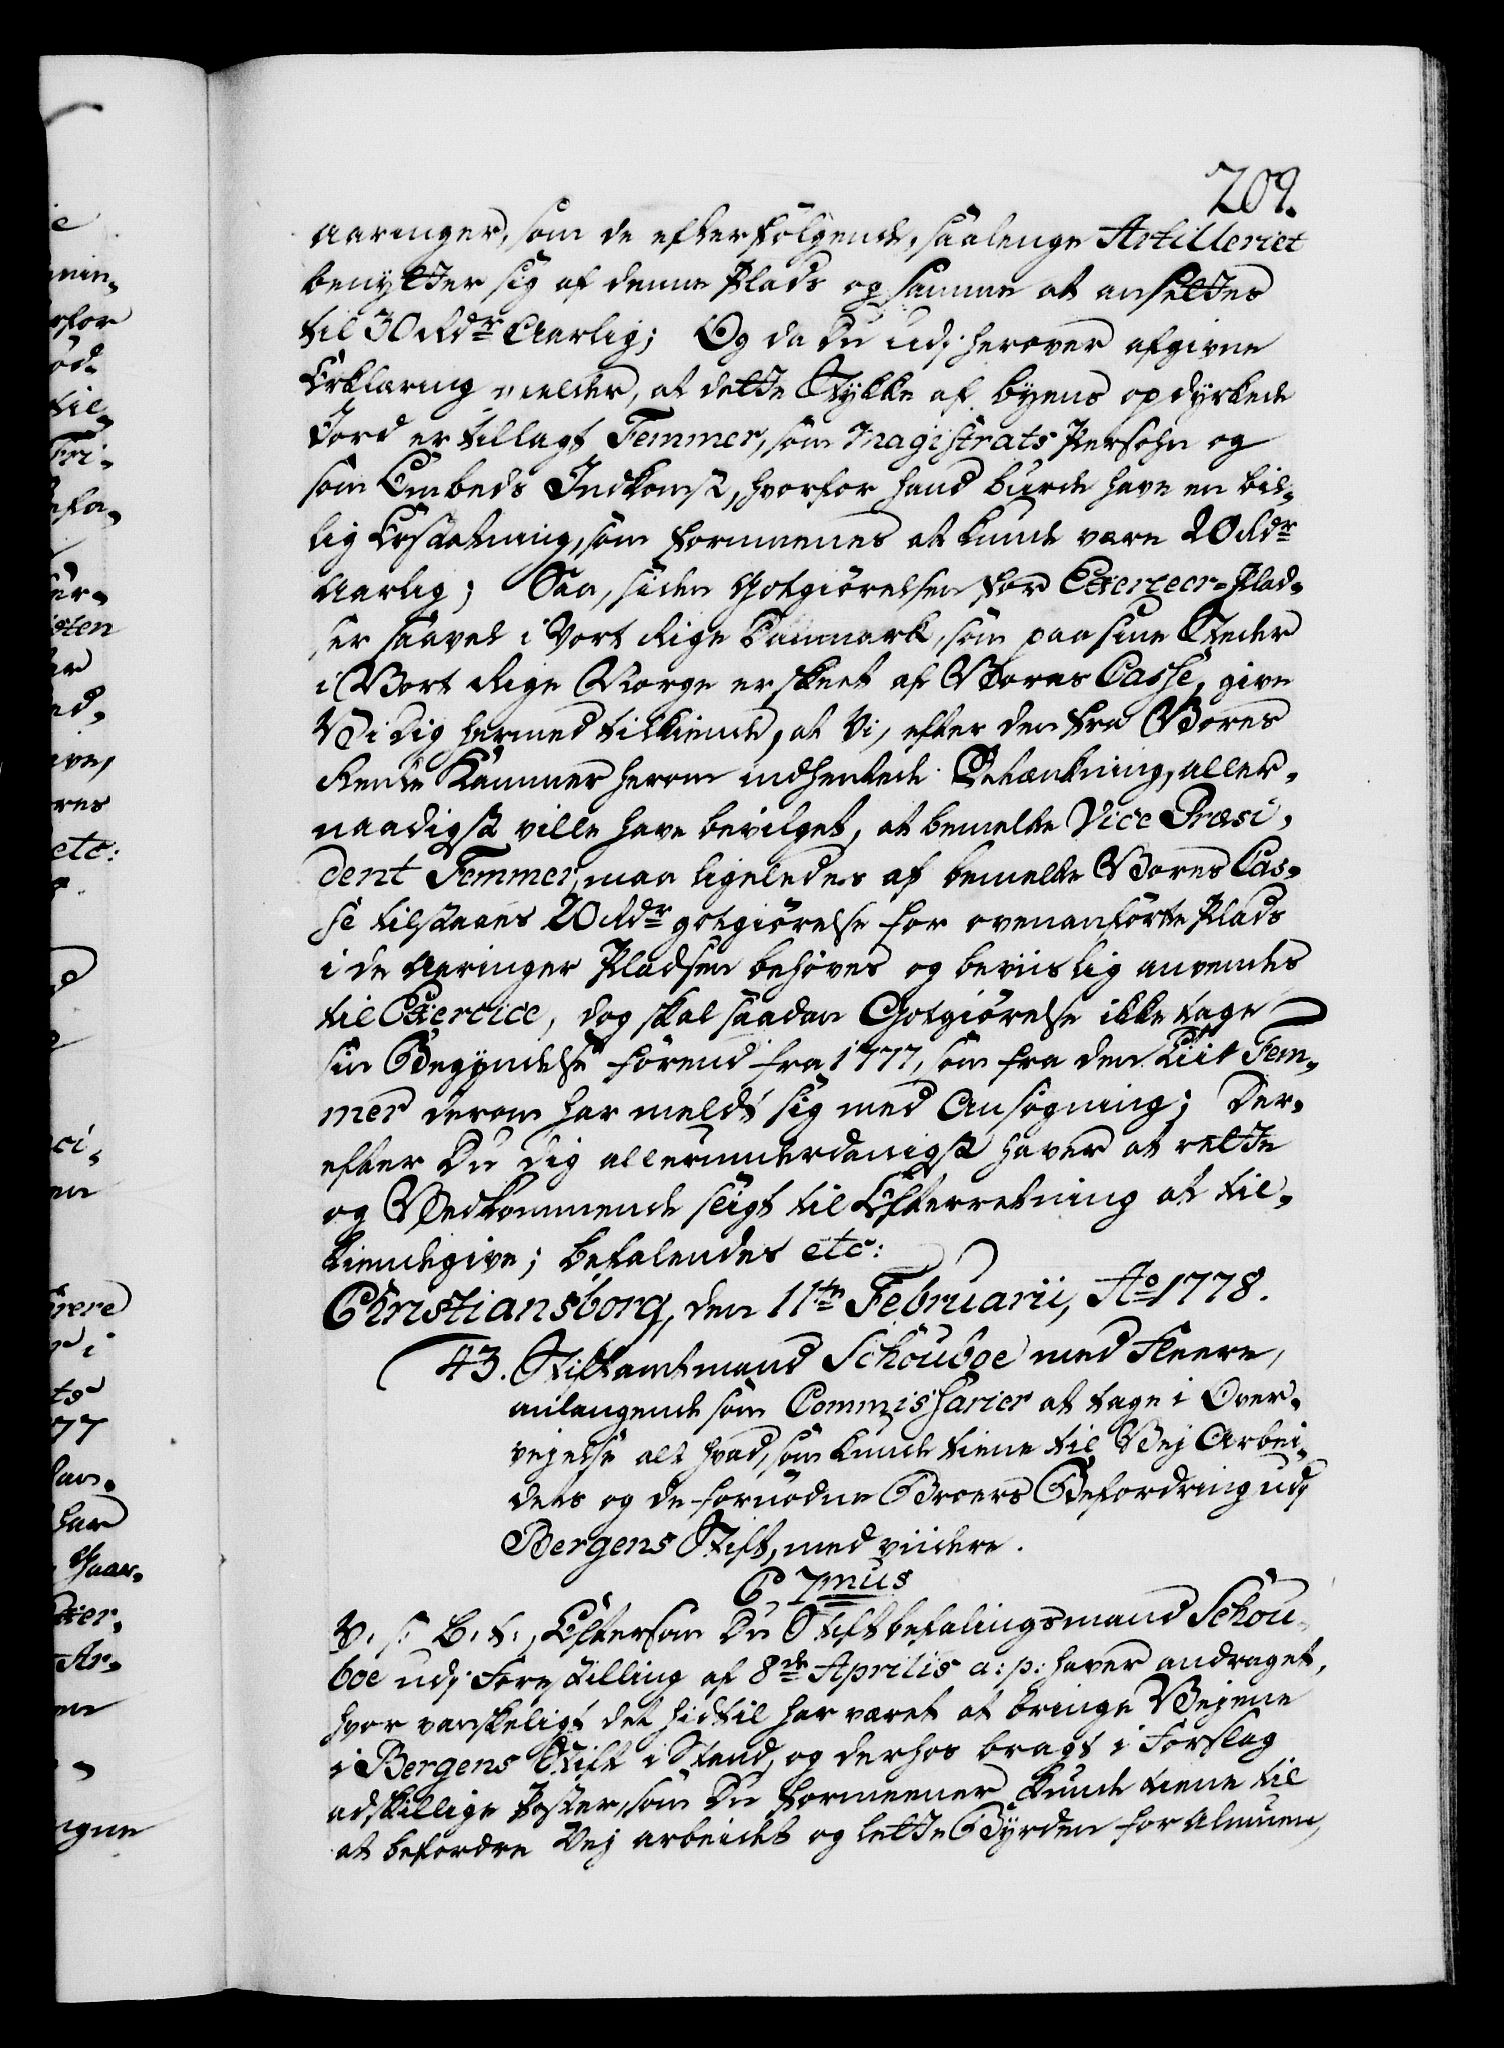 209.
aaringer, som de efterfølgende, saalenge Artilleriet
benytter sig af denne Plads og samme at ansettes
til 30 Rdr Aarlig; Og da Du udj herover afgivne
Erklæring melder, at dette Stykke af byens opdyrkede
Jord er tillagt Femmer, som Magistrats Persohn og
som Embeds Indkomst, hvorfor hand burde have en bil-
lig Erstatning, som formeenes at kunde være 20 Rdr
Aarlig; Saa, siden Godtgiørelsen for Exerceer-Plad-
ser saavel i Vort Rige Danmark, som paa sine Steder
i Vort Rige Norge er skeet af Vores Casse, give
Vi dig hermed tilkiende, at Vi, efter den fra Vores
Rente Kammer herom indhentede Betænkning, aller-
naadigst ville have bevilget, at bemelte Vice Præsi-
dent Femmer, maa ligeledes af bemelte Vores Cas-
se tilstaaes 20 Rdr godtgiørelse for ovenanførte Plads
i de Aaringer Pladsen behøves og beviislig anvendes
til Exercice, dog skal saadan Godtgiørelse ikke tage
sin Begyndelse førend fra 1777, som fra den Tiid Fem-
mer derom har meldt sig med Ansøgning; Der-
efter Du dig allerunderdanigst haver at rette
og Vedkommende sligt til Efterretning at til-
kiendegive; befalendes etc:
Christiansborg, den 11te Februarii, Ao 1778.
43. Stiftamtmand Schouboe med Fleere,
anlangende som Commissarier at tage i Over-
vejelse alt hvad, som kunde tiene til Vej Arbei-
dets og de fornødne Broers Befordring udj
Bergens Stift, med viidere.
C. 7mus
V. s. B. t., Eftersom Du Stiftbefalingsmand Schou-
boe udj Forestilling af 8de Aprilis a: p: haver andraget,
hvor vanskeligt det hidtil har været at bringe Vejene
i Bergens Stift i Stand, og derhos bragt i Forslag
adskillige Poster, som Du formeener kunde tiene til
at befordre Vej arbeidet og lette Byrden for Almuen,